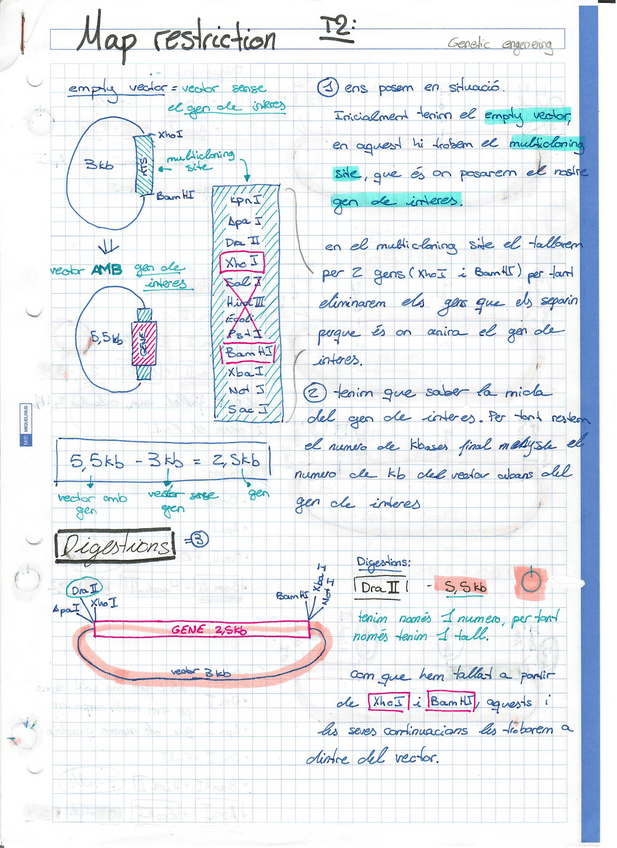 Map restriction T2:
Genetic engenering
empty vector = vector sense
el gen de interes
XhoI
3kb
MTS
multicloning
site
BamHI
vector AMB gen de
interes
5,5kb
GENE
KpnI
ApaI
Dra II
Xho I
Sal I
Hind III
EcoRI
Pst I
BamHI
Xba I
Not I
Sac I
5,5kb - 3kb = 2,5kb
vector amb
gen
vector sense
gen
gen
1 ens posem en situació.
Inicialment tenim el empty vector,
en aquest hi trobem el multicloning
site, que és on posarem el nostre
gen de interes.
en el multicloning site el tallarem
per 2 gens (XhoI i BamHI) per tant
eliminarem els gens que els separin
perque és on anira el gen de
interes.
2 tenim que saber la mida
del gen de interes. Per tant restem
el numero de kbases final el
numero de kb del vector abans del
gen de interes
Digestions = 3
Dra II
ApaI
XhoI
BamHI
XbaI
NotI
GENE 2,5kb
vector 3kb
Digestions:
Dra II - 5,5kb
tenim només 1 numero, per tant
només tenim 1 tall.
com que hem tallat a partir
de XhoI i BamHI, aquests i
les seves continuacions les trobarem a
dintre del vector.
MIQUELRIUS